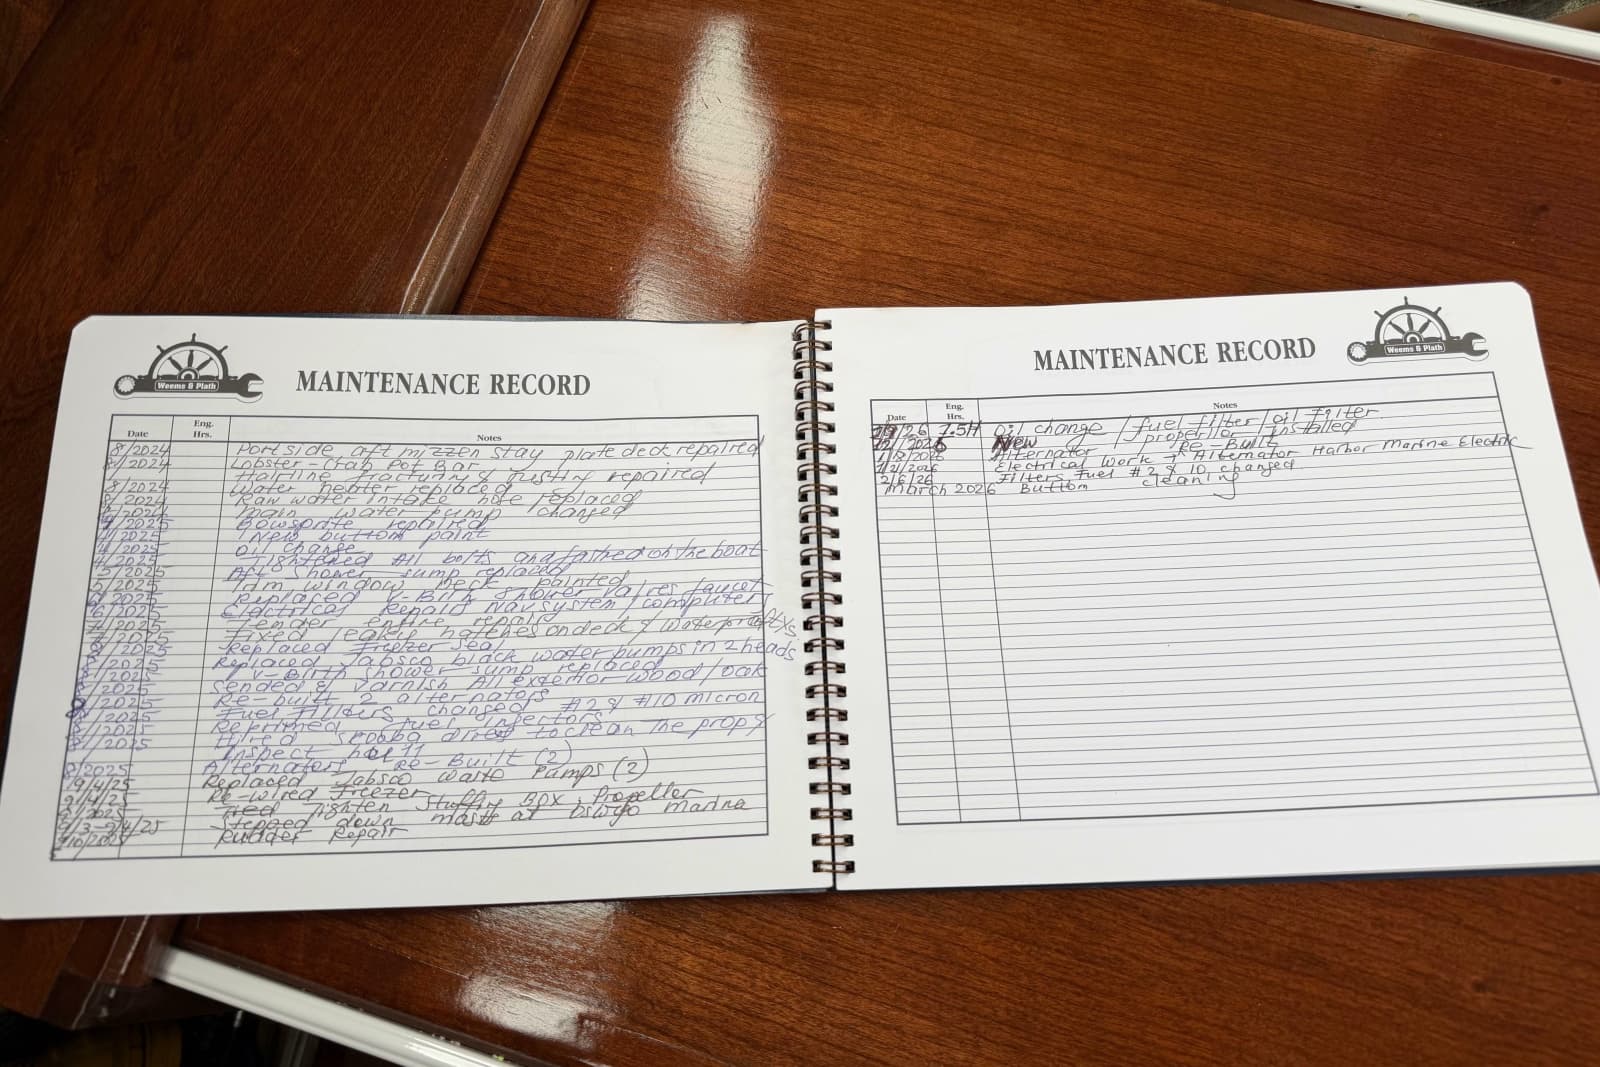 Weems & Plath
MAINTENANCE RECORD
Date
Eng. Hrs.
Notes
8/2024 Portside aft mizzen stay plate deck repaired
8/2024 Lobster-Crab Pot Bar
Hairline fracturing & rusting repaired
8/2024 Water heater replaced
8/2024 Raw water intake hose replaced
8/2024 main water pump changed
4/2025 Bowsprite repaired
4/2025 New buttom paint
4/2025 Oil change
4/2025 Tightened All bolts and fastned on the boat
5/2025 Aft shower sump replaced
5/2025 Trim window Deck painted
6/2025 Replaced V-Birth shower valves faucet
6/2025 Electrical Repairs Nav system/computers
7/2025 Tender entire repair
7/2025 Fixed leaky hatches on deck & waterproof
8/2025 Replaced Freezer Seal
8/2025 Replaced Jabsco black water pumps in 2 heads
8/2025 V-Birth shower sump replaced
8/2025 Sended & varnish All exterior wood/oak
8/2025 Re-built 2 alternators
8/2025 Fuel Filters changed #2 & #10 micron
8/2025 Reprimed fuel injectors
8/2025 Hired scooba diver to clean the prop &
inspect hull
8/2025 Alternators Re-Built (2)
9/4/25 Replaced Jabsco waste Pumps (2)
9/4/25 Re-wired Freezer
Tighten stuffing Box, Propeller
Stepped down masts at Oswego marina
Rudder Repair
MAINTENANCE RECORD
Weems & Plath
Date
Eng. Hrs.
Notes
Oil change / fuel filter / oil filter
New propellor installed
Alternator Re-Built
Electrical work Alternator Harbor Marine Electric
2/6/26 Filters Fuel #2 & 10 changed
March 2026 Buttom cleaning